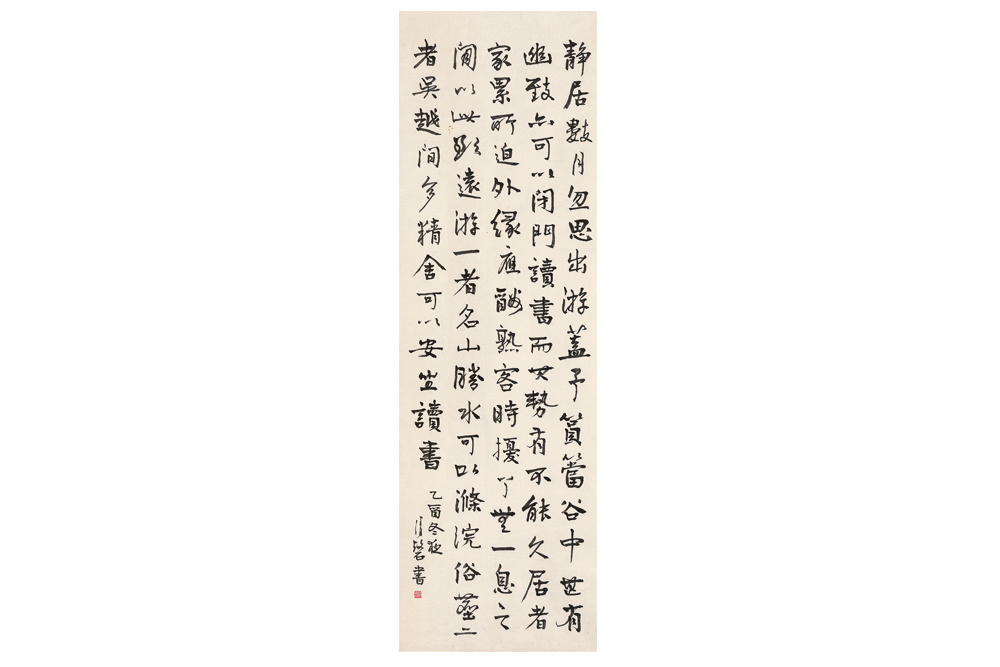 靜居數月忽思出游蓋予篔簹谷中甚有
幽致亦可以閉門讀書而其勢有不能久居者
家累所迫外緣應酬熟客時擾了無一息之
閒以此欲遠游一者名山勝水可以滌浣俗塵二
者吳越間多精舍可以安坐讀書
乙酉冬夜
書